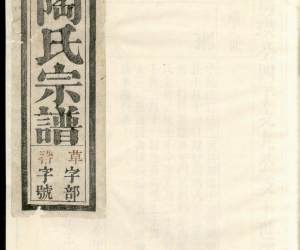 陶氏宗譜
草字部
字號